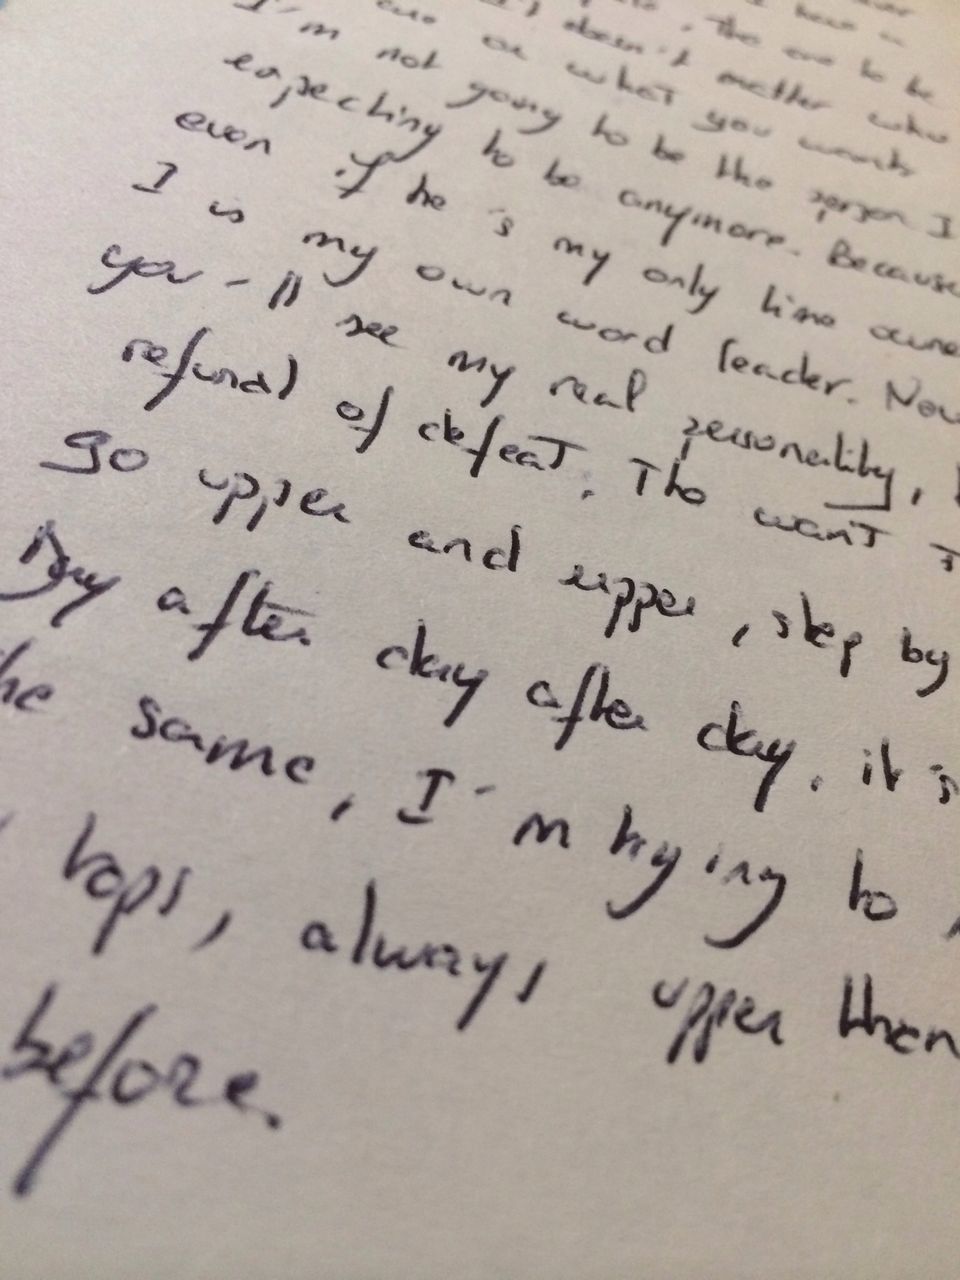 have
The one to be
doesn't matter who
are or what you wants
I'm not going to be the person I
expeching to be anymore. Because
even if he's my only time owne
I is my own word leader. Now
you-ll see my real personality,
refund of defeat. The want
go upper and upper, step by
Day after day after day. it's
the same, I'm trying to
tops, always upper then
before.